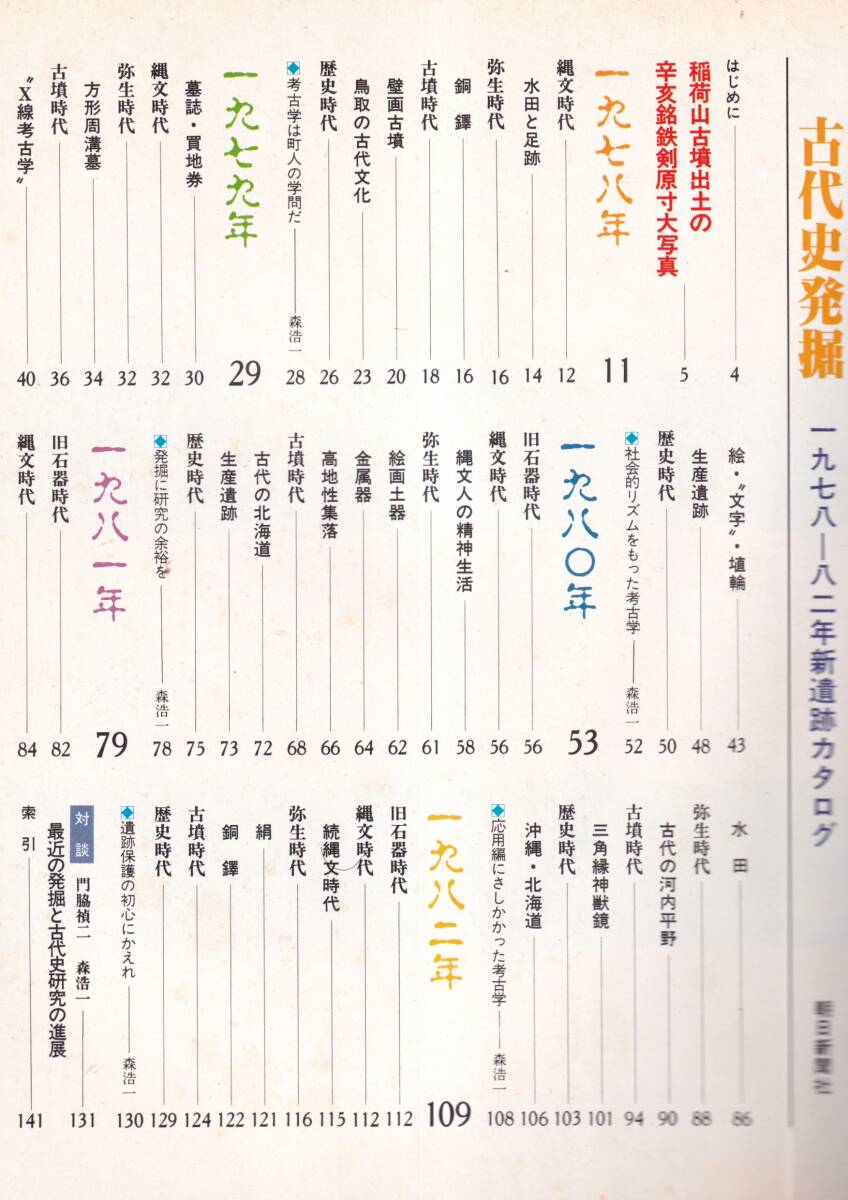 古代史発掘
一九七八―八二年新遺跡カタログ
朝日新聞社
はじめに 4
稲荷山古墳出土の
辛亥銘鉄剣原寸大写真 5
一九七八年 11
縄文時代 12
水田と足跡 14
弥生時代 16
銅鐸 16
古墳時代 18
壁画古墳 20
鳥取の古代文化 23
歴史時代 26
◆考古学は町人の学問だ 森浩一 28
一九七九年 29
墓誌・買地券 30
縄文時代 32
弥生時代 32
方形周溝墓 34
古墳時代 36
〝X線考古学〟 40
絵・〝文字〟・埴輪 43
生産遺跡 48
歴史時代 50
◆社会的リズムをもった考古学 森浩一 52
一九八〇年 53
旧石器時代 56
縄文時代 56
縄文人の精神生活 58
弥生時代 61
絵画土器 62
金属器 64
高地性集落 66
古墳時代 68
古代の北海道 72
生産遺跡 73
歴史時代 75
◆発掘に研究の余裕を 森浩一 78
一九八一年 79
旧石器時代 82
縄文時代 84
水田 86
弥生時代 88
古代の河内平野 90
古墳時代 94
三角縁神獣鏡 101
歴史時代 103
沖縄・北海道 106
◆応用編にさしかかった考古学 森浩一 108
一九八二年 109
旧石器時代 112
縄文時代 112
続縄文時代 115
弥生時代 116
絹 121
銅鐸 122
古墳時代 124
歴史時代 129
◆遺跡保護の初心にかえれ 森浩一 130
対談 門脇禎二 森浩一 131
最近の発掘と古代史研究の進展
索引 141